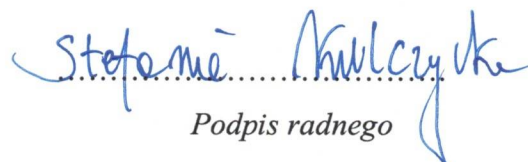 Stefania Kulczycka
Podpis radnego